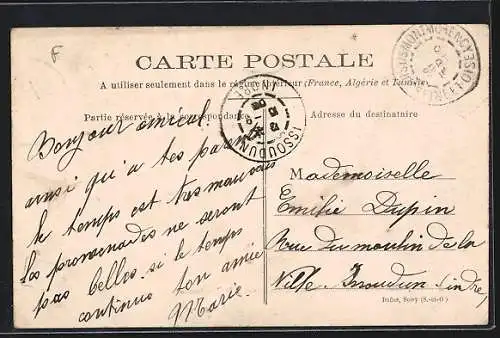 F
CARTE POSTALE
A utiliser seulement dans le régime intérieur (France, Algérie et Tunisie)
Partie réservée à la correspondance
Adresse du destinataire
Bonjour amical
ainsi qu'a tes parents
le temps est tres mauvais
Les promenades ne seront
pas belles si le temps
continue ton amie
Marie.
ISSOUDUN
Mademoiselle
Emilie Dupin
Rue du moulin de la
Ville Issoudun (indre)
Dufot, Soisy (S.-et-O.)